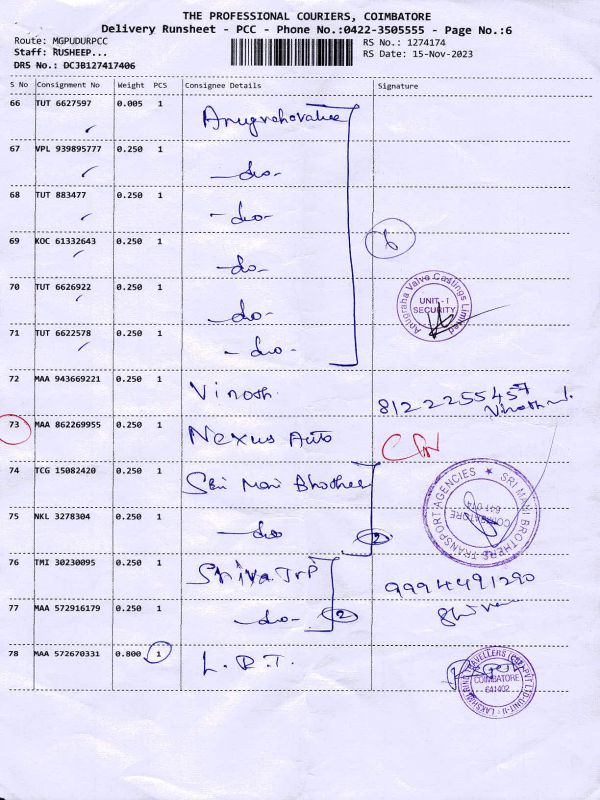 THE PROFESSIONAL COURIERS, COIMBATORE
Delivery Runsheet - PCC - Phone No.:0422-3505555 - Page No.:6
Route: MGPUDURPCC
Staff: RUSHEEP...
DRS No.: DCJB127417406
RS No.: 1274174
RS Date: 15-Nov-2023
S No Consignment No Weight PCS Consignee Details Signature
66 TUT 6627597 0.005 1
67 VPL 939895777 0.250 1 -do-
68 TUT 883477 0.250 1 -do-
69 KOC 61332643 0.250 1 -do-
6
70 TUT 6626922 0.250 1 -do-
Anugraha Valve Castings Limited
UNIT-I
SECURITY
71 TUT 6622578 0.250 1 -do-
72 MAA 943669221 0.250 1 Vinoth 8122255457
Vinoth
73 MAA 862269955 0.250 1 Nexus Auto
74 TCG 15082420 0.250 1 Sri Mani Brothers
SRI MANI BROTHERS TRANSPORT AGENCIES
COIMBATORE
641 014
75 NKL 3278304 0.250 1 -do- 2
76 TMI 30230095 0.250 1 9994491290
77 MAA 572916179 0.250 1 -do- 2
78 MAA 572670331 0.800 1 L.R.T.
COIMBATORE
641402